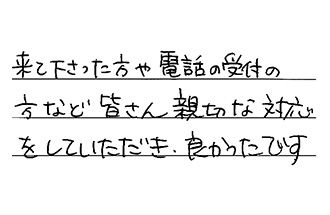 来て下さった方や電話の受付の
方など皆さん親切な対応
をしていただき、良かったです